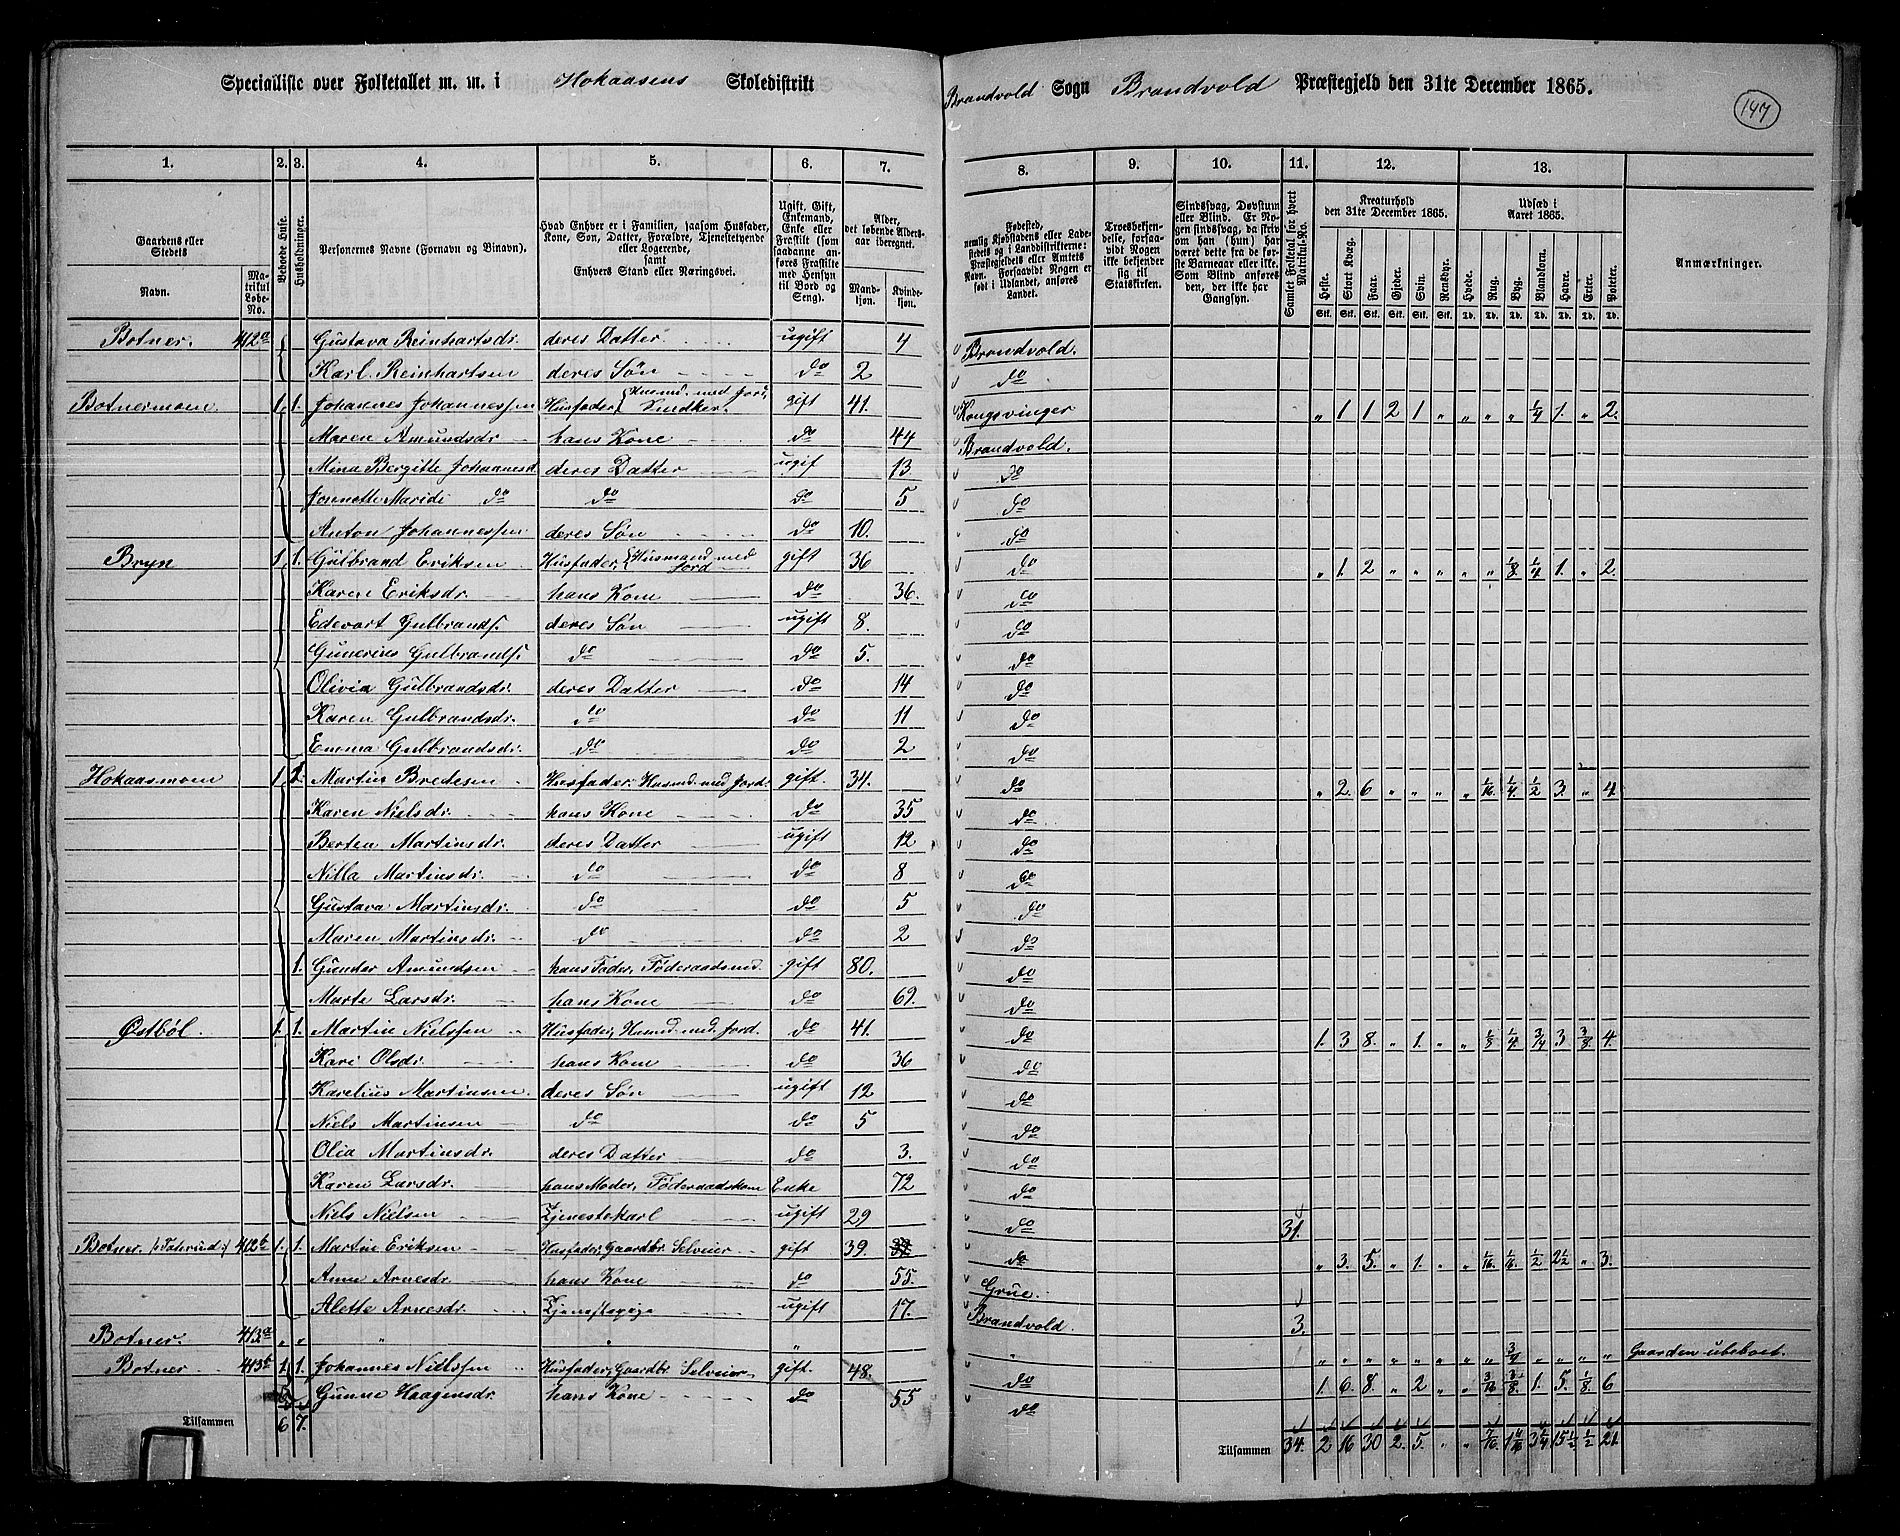 Specialliste over Folketallet m. m. i Hokaasens Skoledistrikt Brandvold Sogn Brandvold Præstegjeld den 31te December 1865.
147
1. 2. 3. 4. 5. 6. 7. 8. 9. 10. 11. 12. 13.
Gaardens eller Stedets Navn. Matrikul Løbe-No. Beboede Huse. Husholdninger. Personernes Navne (Fornavn og Binavn). Hvad Enhver er i Familien, saasom Husfader, Kone, Søn, Datter, Forældre, Tjenestetyende eller Logerende, samt Enhvers Stand eller Næringsvei. Ugift, Gift, Enkemand, Enke eller Frastilt (som saadanne anføres Frastilte med Hensyn til Bord og Seng). Alder, det løbende Aldersaar iberegnet. Mandkjøn. Kvindekjøn. Fødested, nemlig Kjøbstadens eller Ladestedets og i Landdistrikterne: Præstegjeldets eller Amtets Navn. Forsaavidt Nogen er født i Udlandet, anføres Landet. Troesbekjendelse, forsaavidt Nogen ikke bekjender sig til Statskirken. Sindssvag, Døvstum eller Blind. Er Nogen sindssvag, da skriv om han (hun) har været dette fra de første Barneaar eller ikke. Som Blind anføres den, der ikke har Gangsyn. Samlet Folketal for hvert Matrikul-No. Kreaturhold den 31te December 1865. Udsæd i Aaret 1865. Anmærkninger.
Heste. Stort Kvæg. Faar. Gjeder. Svin. Rensdyr. Hvede. Rug. Byg. Blandkorn. Havre. Erter. Poteter.
Stk. Stk. Stk. Stk. Stk. Stk. Td. Td. Td. Td. Td. Td. Td.
Botner. 412a Gustava Reinhartsdr. deres Datter ugift 4 Brandvold.
Karl Reinhartsen deres Søn do 2 do
Botnermoen 1. 1. Johannes Johannessen Husfader, Husmd. med Jord, Snedker. gift 41. Kongsvinger „ 1 1 2 1 „ „ „ „ 1/4 1. „ 2.
Maren Amundsdr. hans Kone do 44 Brandvold.
Mina Bergitte Johannesd. deres Datter ugif 13 do
Jonnette Maridi do do do 5 do
Anton Johannessen deres Søn do 10. do
Bryn 1. 1. Gulbrand Eriksen Husfader, Husmand med Jord gift 36 do „ 1. 2 „ „ „ „ „ 1/8 1/4 1. „ 2.
Karen Eriksdr. hans Kone do 36. do
Edevart Gulbrands. deres Søn ugift 8. do
Gunerius Gulbrands. do do 5. do
Olivia Gulbrandsdr. deres Datter do 14 do
Karen Gulbrandsdr. do do 11 do
Emma Gulbrandsdr. do do 2 do
Hokaasmoen 1. 1. Martin Bredesen Husfader, Husmd. med Jord. gift. 34. do „ 2. 6 „ „ „ „ 1/16 1/4 1/2 3. „ 4.
Karen Nielsdr. hans Kone do 35 do
Berten Martinsdr. deres Datter ugift 12 do
Nilla Martinsdr. do do 8 do
Gustava Martinsdr. do do 5 do
Maren Martinsdr. do do 2 do
1. Gunder Amundsen hans Fader, Föderaadsmd. gift 80. do
Marte Larsdr. hans Kone do 69. do
Østböl. 1. 1. Martin Nielssen Husfader, Husmd. med Jord. do 41. do 1. 3 8. „ 1. „ „ 1/8 1/4 3/4 3 3/8 4.
Kari Olsdr. hans Kone do 36 do
Karelius Martinsen. deres Søn ugift 12 do
Niels Martinsen do do 5 do
Olia Martinsdr. deres Datter do 3. do
Karen Larsdr. hans Moder, Föderaadskone Enke 72 do
Niels Nielsen Tjenestekarl ugift 29 do 31.
Botner. 412b 1. 1. Martin Eriksen Husfader, Gaardbr. Selveier gift 39. do „ 3. 5. „ 1. „ „ 1/16 1/16 1/2 2 1/2 „ 3.
Anne Arnesdr. hans Kone do 55. Grue.
Alette Arnesdr. Tjenestepige ugift 17. Brandvold. 3.
Botner. 413a „ „ „ „ „ „ „ „ „ „ „ „ „ „ 3/4 „ „ „ „ Gaarden ubeboet.
Botner 413b 1. 1. Johannes Nielssen Husfader, Gaardbr. Selveier gift. 48. do 1. 6. 8. „ 2 „ „ 3/16 3/8 1. 5. 1/8 6
Gunne Haagensdr. hans Kone do 55 do
Tilsammen 6 7. Tilsammen 34. 2 16 30 2. 5. „ „ 7/16 1 3 1/4 15 1/2 1/2 21.